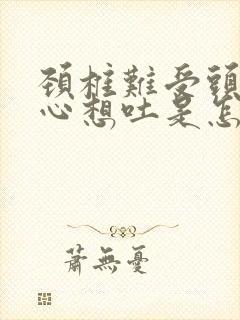 頚椎難受頭
心想吐是怎
蕭無憂